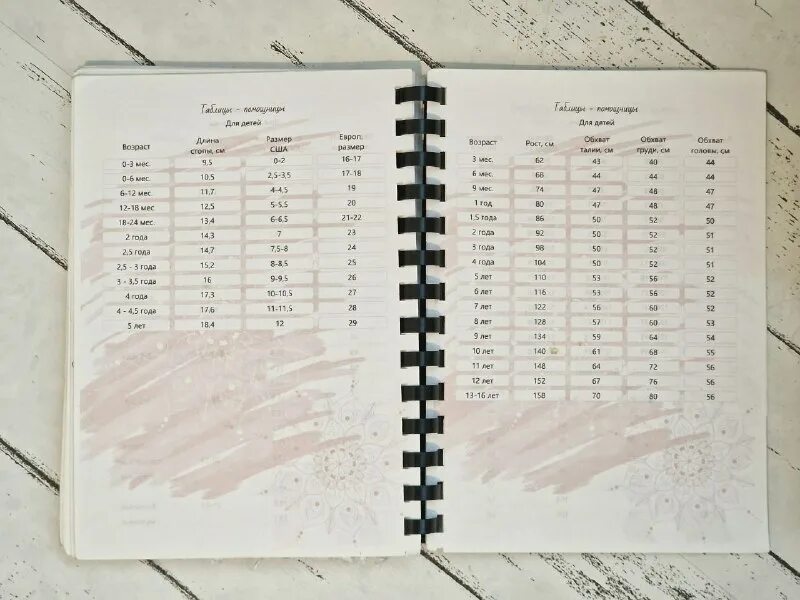 Таблицы - помощницы
Для детей
Возраст Длина стопы, см Размер США Европ. размер
0-3 мес. 9,5 0-2 16-17
0-6 мес. 10,5 2,5-3,5 17-18
6-12 мес. 11,7 4-4,5 19
12-18 мес. 12,5 5-5,5 20
18-24 мес. 13,4 6-6,5 21-22
2 года 14,3 7 23
2,5 года 14,7 7,5-8 24
2,5 - 3 года 15,2 8-8,5 25
3 - 3,5 года 16 9-9,5 26
4 года 17,3 10-10,5 27
4 - 4,5 года 17,6 11-11,5 28
5 лет 18,4 12 29
Таблицы - помощницы
Для детей
Возраст Рост, см Обхват талии, см Обхват груди, см Обхват головы, см
3 мес. 62 43 40 44
6 мес. 68 44 44 44
9 мес. 74 47 48 47
1 год 80 47 48 47
1,5 года 86 50 52 50
2 года 92 50 52 51
3 года 98 50 52 51
4 года 104 50 52 51
5 лет 110 53 56 52
6 лет 116 53 56 52
7 лет 122 56 60 52
8 лет 128 57 60 53
9 лет 134 59 64 54
10 лет 140 61 68 55
11 лет 148 64 72 56
12 лет 152 67 76 56
13-16 лет 158 70 80 56